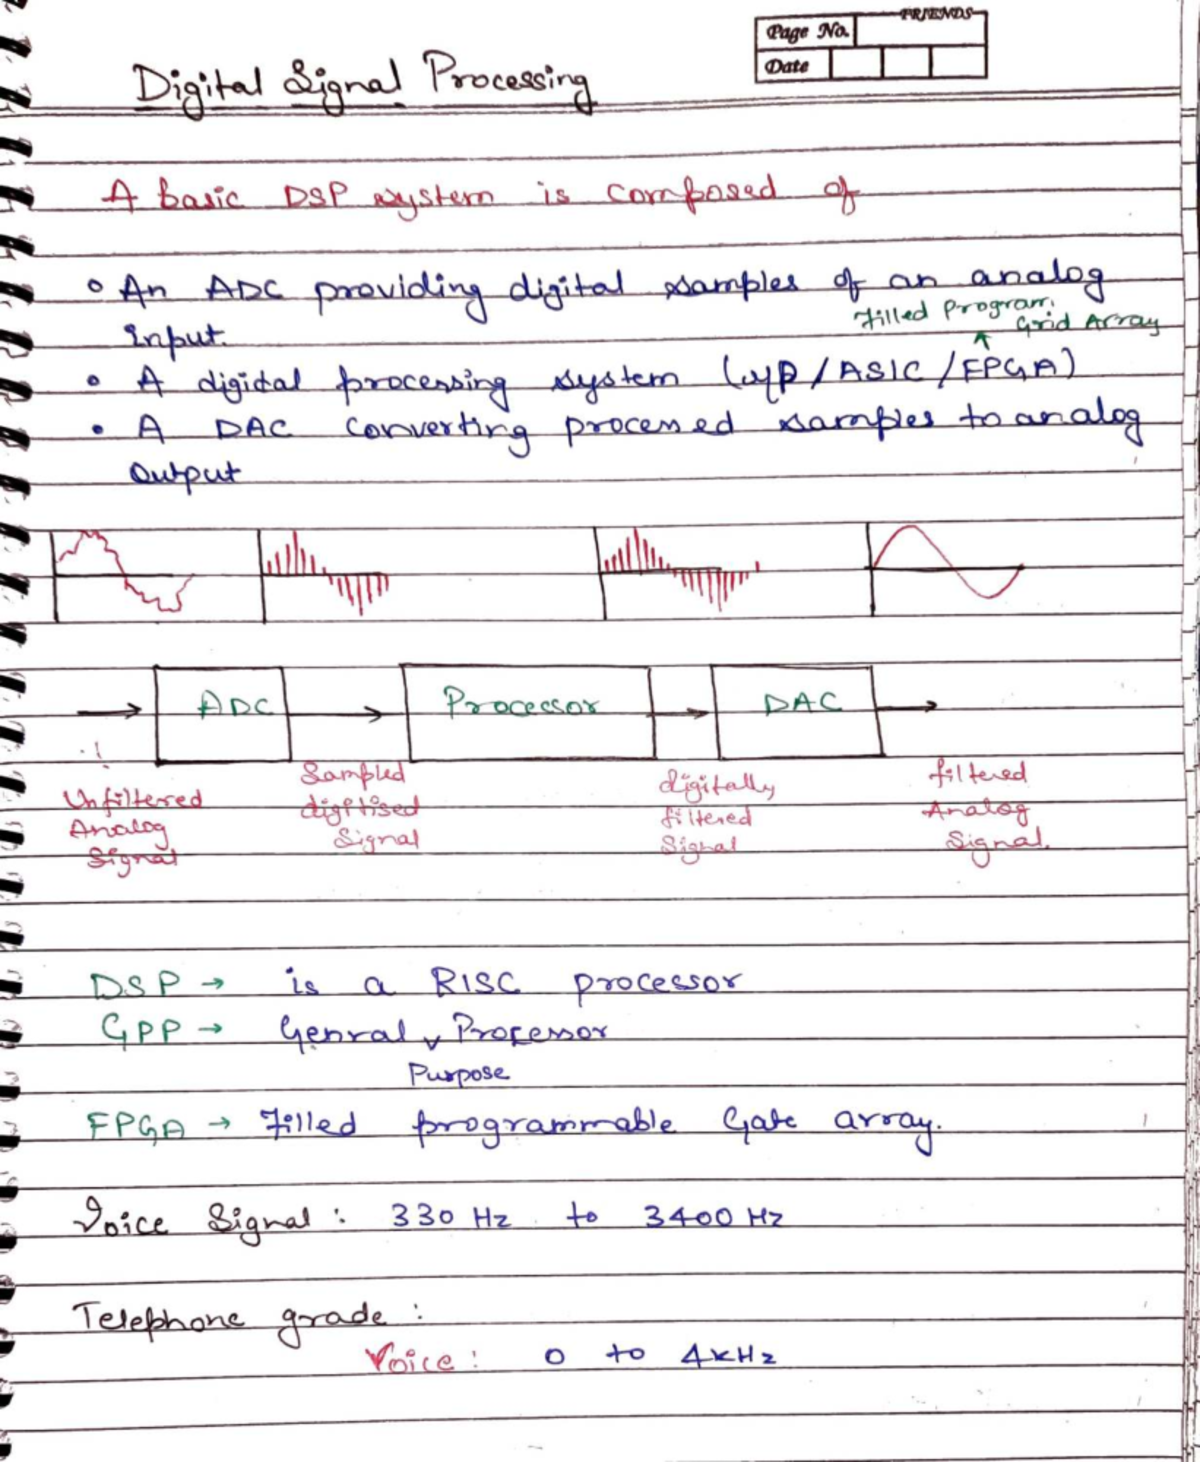 FRIENDS
Page No.
Date
Digital Signal Processing
A basic DSP system is composed of
• An ADC providing digital samples of an analog
input.
Filled Program.
Grid Array
• A digital processing system (μp/ASIC/FPGA)
• A DAC converting processed samples to analog
output
ADC
Processor
DAC
Unfiltered
Analog
Signal
Sampled
digitised
Signal
digitally
filtered
Signal
filtered
Analog
Signal.
DSP → is a RISC processor
GPP → Genral Processor
Purpose
FPGA → Filled programmable Gate array.
Voice Signal : 330 Hz to 3400 Hz
Telephone grade :
Voice : 0 to 4KHz